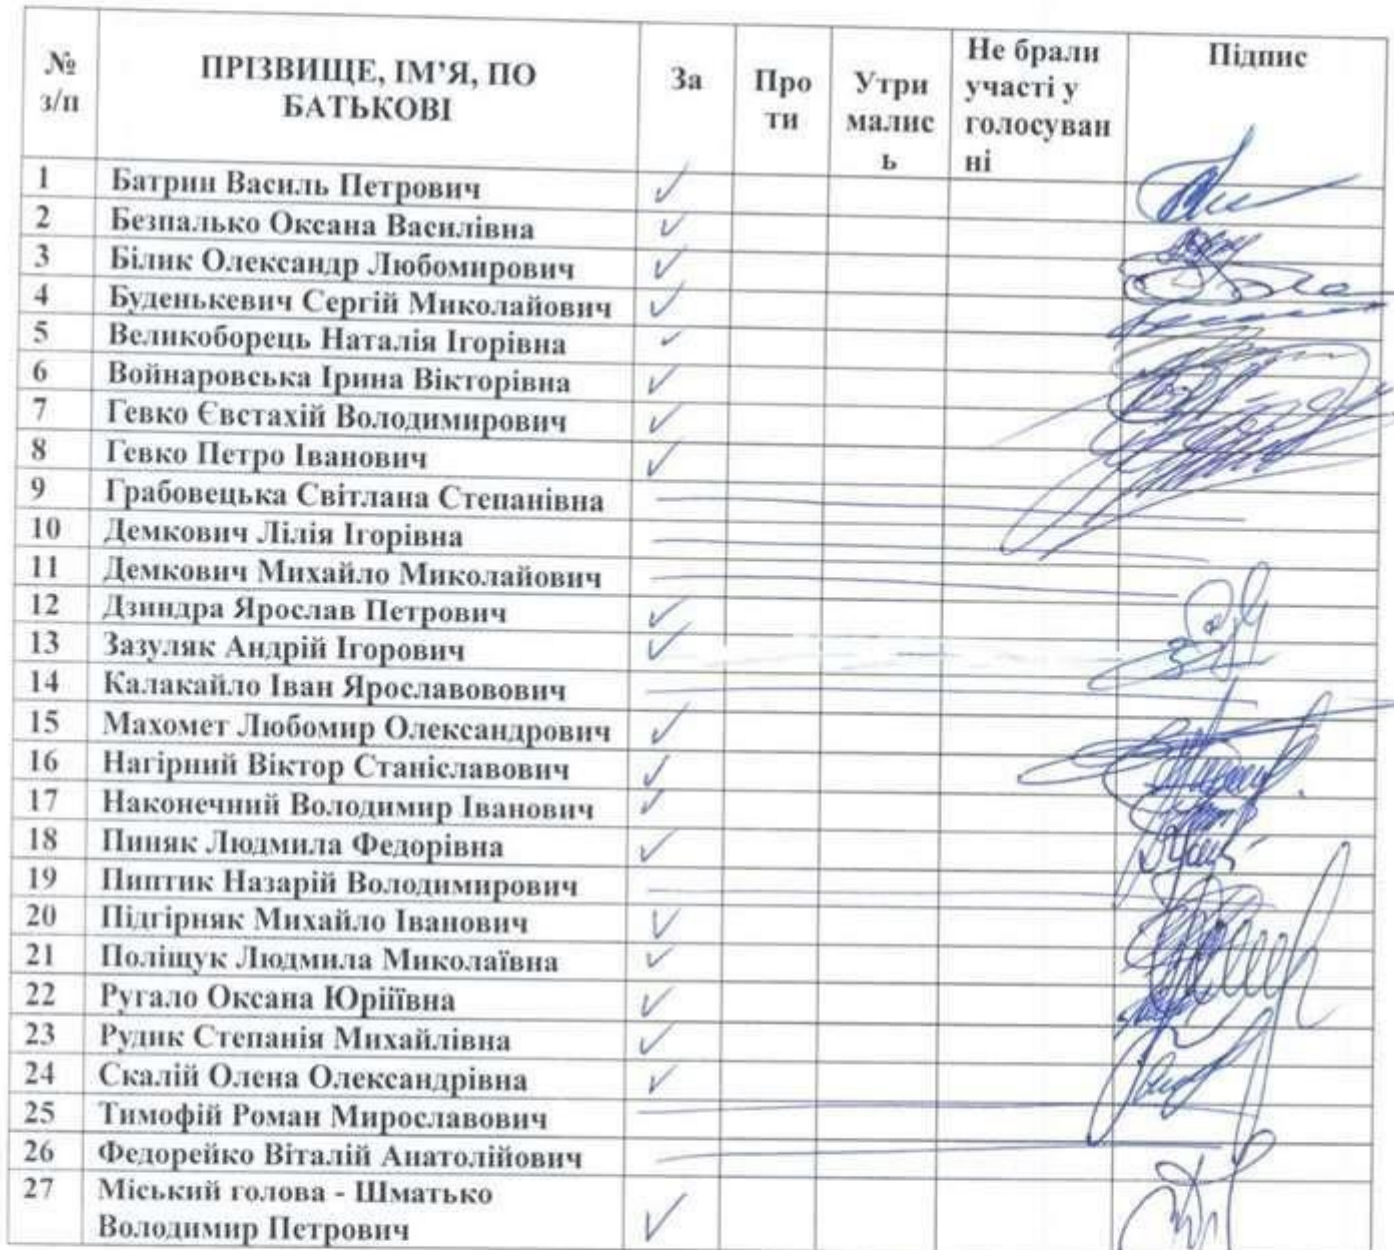 № з/п ПРІЗВИЩЕ, ІМ’Я, ПО БАТЬКОВІ За Про ти Утри малис ь Не брали участі у голосуван ні Підпис
1 Батрин Василь Петрович ✓
2 Безпалько Оксана Василівна ✓
3 Білик Олександр Любомирович ✓
4 Буденькевич Сергій Миколайович ✓
5 Великоборець Наталія Ігорівна ✓
6 Войнаровська Ірина Вікторівна ✓
7 Гевко Євстахій Володимирович ✓
8 Гевко Петро Іванович ✓
9 Грабовецька Світлана Степанівна
10 Демкович Лілія Ігорівна
11 Демкович Михайло Миколайович
12 Дзиндра Ярослав Петрович ✓
13 Зазуляк Андрій Ігорович ✓
14 Калакайло Іван Ярославовович
15 Махомет Любомир Олександрович ✓
16 Нагірний Віктор Станіславович ✓
17 Наконечний Володимир Іванович ✓
18 Пиняк Людмила Федорівна ✓
19 Пиптик Назарій Володимирович
20 Підгірняк Михайло Іванович ✓
21 Поліщук Людмила Миколаївна ✓
22 Ругало Оксана Юріїївна ✓
23 Рудик Степанія Михайлівна ✓
24 Скалій Олена Олександрівна ✓
25 Тимофій Роман Мирославович
26 Федорейко Віталій Анатолійович
27 Міський голова - Шматько
Володимир Петрович ✓